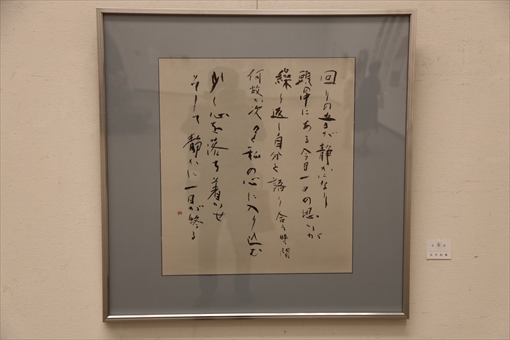 回りの音が静かになり
頭の中にある今日一日の思いが
繰り返し自分と語り合う時間
何故か次々と私の心に入り込む
少し心を落ち着かせ
そして静かに一日が終る